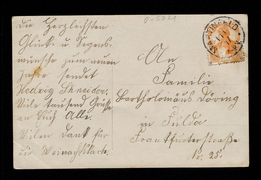 Die Herzlechsten
Glück u. Segens
wünsche zum neuen
Jahre sendet
Hedwig
Viele tausend Grüße
an Euch Alle.
Vielen Dank für
die
B-5021
An
Familie
Bartholomäus Döring
in Fulda
Frankfurterstraße
Nr. 28.